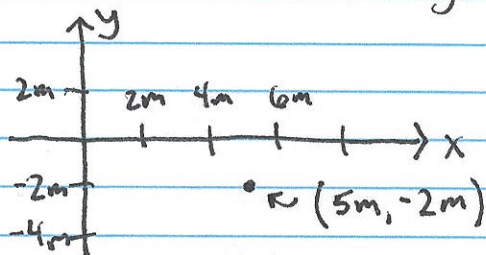 y
2m
2m 4m 6m
x
-2m
(5m, -2m)
-4m